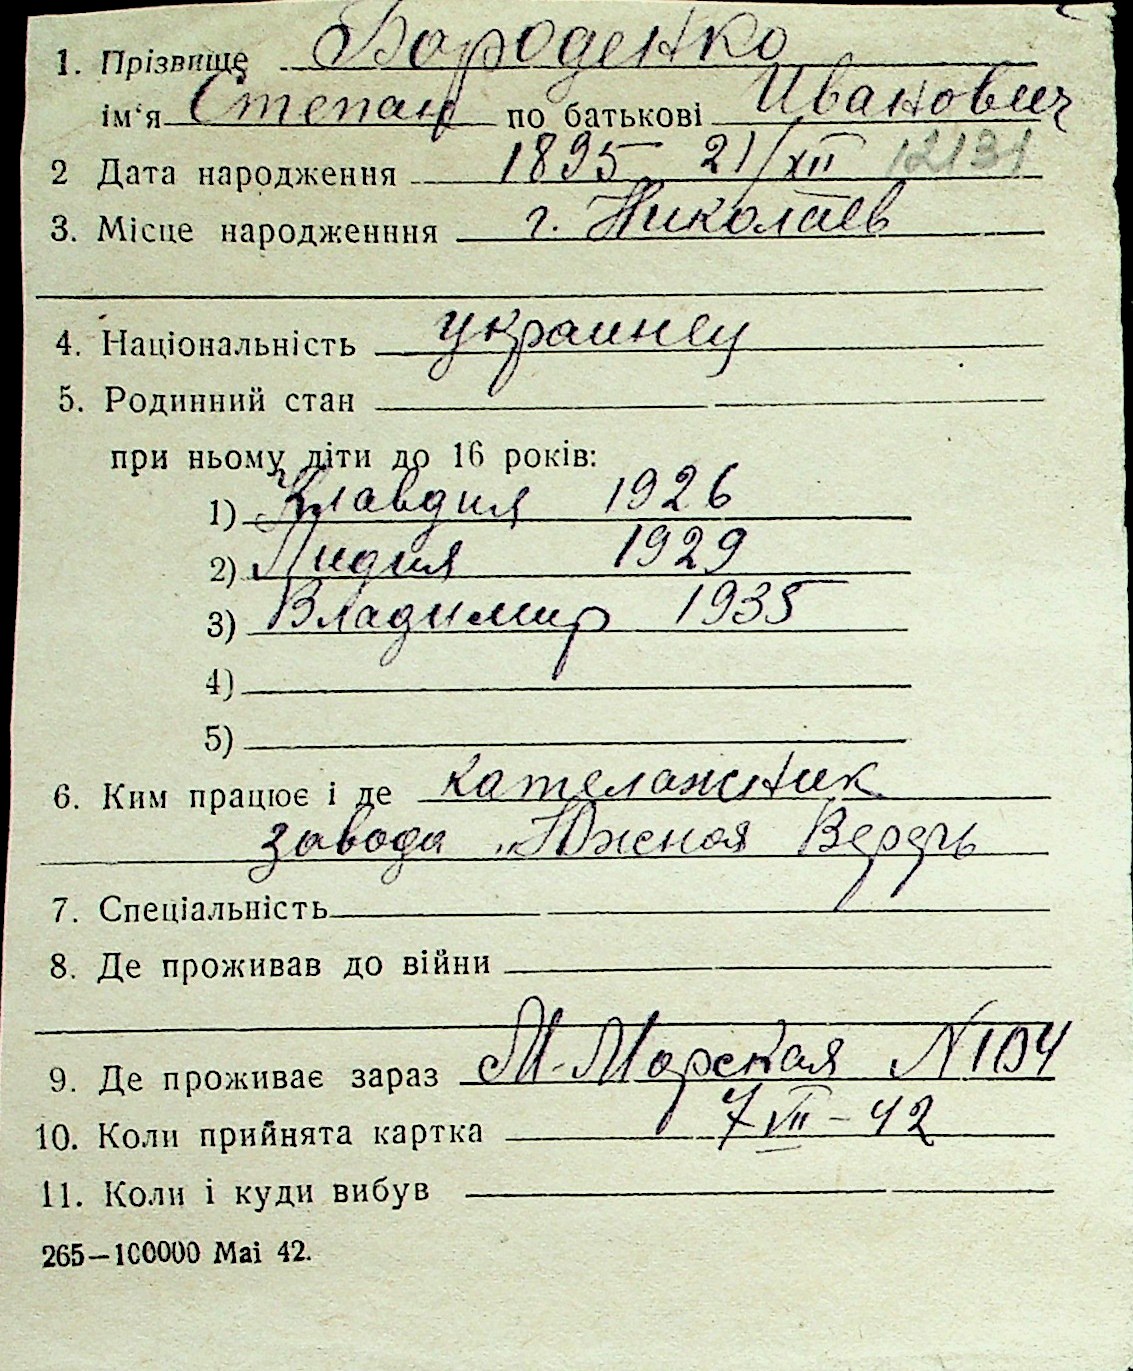 1. Прізвище Бороденко
ім'я Степан по батькові Иванович
2 Дата народження 1895 21/XII 12131
3. Місце народженння г. Николаев
4. Національність украинец
5. Родинний стан
при ньому діти до 16 років:
1) Клавдия 1926
2) Лидия 1929
3) Владимир 1935
4)
5)
6. Ким працює і де кателажник
завода „Южная Верфь
7. Спеціальність
8. Де проживав до війни
9. Де проживає зараз М-Морская N 104
10. Коли прийнята картка 7 VII – 42
11. Коли і куди вибув
265—100000 Mai 42.